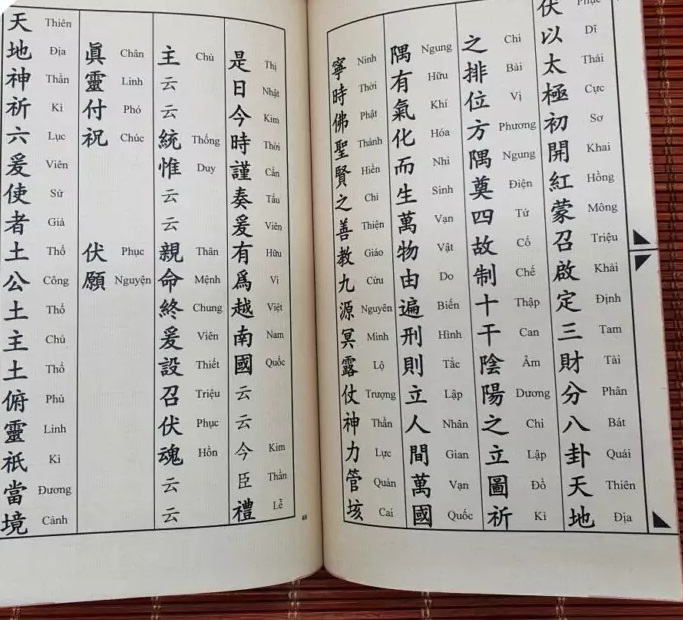 伏以太極初開紅蒙召啟定三財分八卦天地
Phục Dĩ Thái Cực Sơ Khai Hồng Mông Triệu Khải Định Tam Tài Phân Bát Quái Thiên Địa
之排位方隅奠四故制十干陰陽之立圖祈
Chi Bài Vị Phương Ngung Điện Tứ Cố Chế Thập Can Âm Dương Chi Lập Đồ Kì
隅有氣化而生萬物由遍刑則立人間萬國
Ngung Hữu Khí Hóa Nhi Sinh Vạn Vật Do Biến Hình Tắc Lập Nhân Gian Vạn Quốc
寧時佛聖賢之善教九源冥露仗神力管垓
Ninh Thời Phật Thánh Hiền Chi Thiện Giáo Cửu Nguyên Minh Lộ Trượng Thần Lực Quản Cai
是日今時謹奏爰有爲越南國云云今臣禮
Thị Nhật Kim Thời Cẩn Tấu Viên Hữu Vị Việt Nam Quốc Kim Thần Lễ
主云云統惟云云親命終爰設召伏魂云云
Chủ Thống Duy Thân Mệnh Chung Viên Thiết Triệu Phục Hồn
眞靈付祝 伏願
Chân Linh Phó Chúc Phục Nguyện
天地神祈六爰使者土公土主土俯靈祇當境
Thiên Địa Thần Kì Lục Viên Sứ Giả Thổ Công Thổ Chủ Thổ Phủ Linh Kì Đương Cảnh